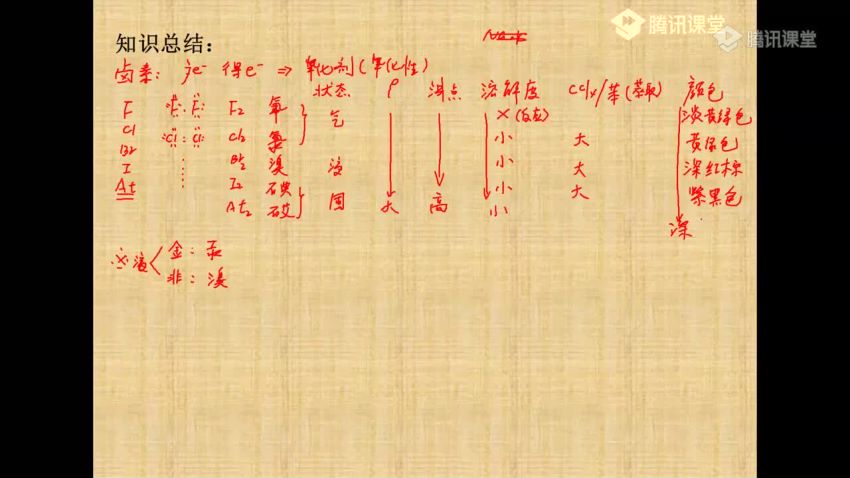 腾讯课堂 腾讯课堂
知识总结：
卤素： 得e⁻ ⇒ 氧化剂(氧化性)
状态 ρ 沸点 溶解度 CCl₄/苯(萃取) 颜色
F F F F₂ 氟 气 ×(反应) 淡黄绿色
Cl Cl Cl Cl₂ 氯 小 大 黄绿色
Br Br₂ 溴 液 小 大 深红棕
I I₂ 碘 固 小 大 紫黑色
At At₂ 砹 大 高 小 深
※液 金：汞
非：溴